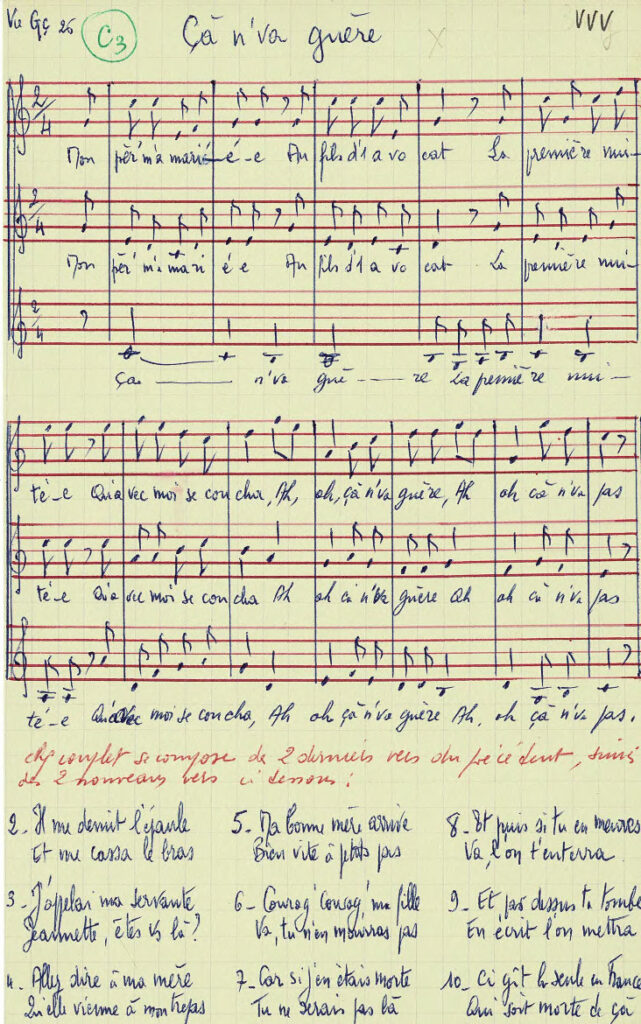 Vu Gç 26 C3 Çà n'va guère VVV
2/4
Mon pèr' m'a marié-é-e Au fils d'1 a vo cat La première nui-
2/4
Mon pèr' m'a mari é e Au fils d'1 a vo cat La première nui-
2/4
Ça n'va guè-re La première nui-
té-e Qu'avec moi se coucha, Ah, ah, çà n'va guère, Ah ah çà n'va pas
té-e Qu'a vec moi se coucha Ah ah çà n'va guère ah ah çà n'va pas
té-e Qu'avec moi se coucha, Ah ah çà n'va guère Ah, ah çà n'va pas.
chq couplet se compose des 2 derniers vers du précédent, suivis
des 2 nouveaux vers ci dessous :
2 - Il me démit l'épaule
Et me cassa le bras
3 - J'appelai ma servante
Jeannette, êtes vs là ?
4 - Allez dire à ma mère
Qu'elle vienne à mon trépas
5 - Ma bonne mère arrive
Bien vite à petits pas
6 - Courag' courag' ma fille
Va, tu n'en mourras pas
7 - Car si j'en étais morte
Tu ne serais pas là
8 - Et puis si tu en meures
Va, l'on t'enterra
9 - Et par dessus ta tombe
En écrit l'on mettra
10 - Ci gît la seule en France
Qui soit morte de çà